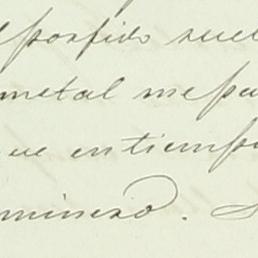 porfido suel
metal mespa
ue entiemp
minero. S